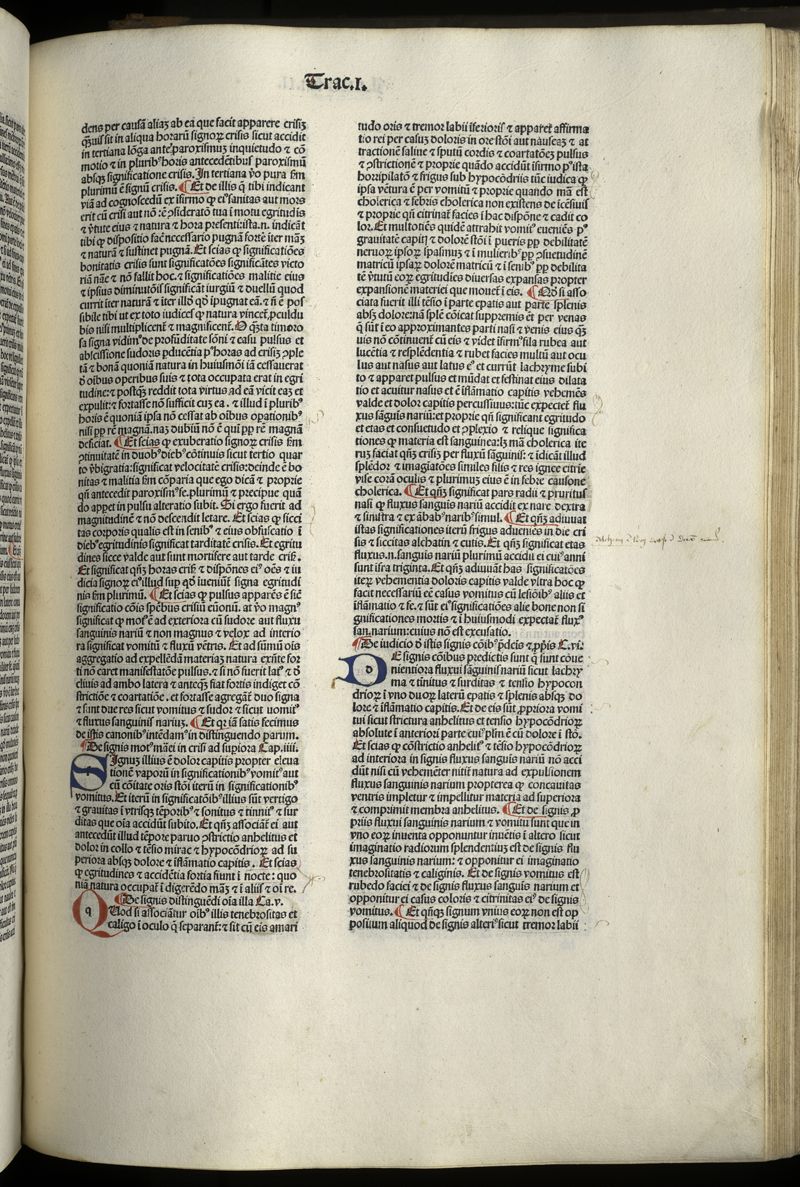 Trac.I.
dens per causā aliaȝ ab ea que facit apparere crisiȝ
q̄uis sit in aliqua horarū signoꝝ crisis sicut accidit
in tertiana lōga ante paroxismū inquietudo ⁊ cō
motio ⁊ in pluribꝰ horis antecedētibꝰ paroxismū
absqȝ significatione crisis. In tertiana v̊o pura ẜm
plurimū ē signū crisis. ¶ Et de illis q̄ tibi indicant
viā ad cognoscedū ex īfirmo ꝙ eiꝰ sanitas aut mors
erit cū crisi aut nō
⁊ v̄tute eius ⁊ natura ⁊ hora presenti: ista.n. indicāt
tibi ꝙ dispositio facit necessario pugnā fortē īter
⁊ naturā ⁊ sustinet pugnā. Et scias ꝙ significatiōes
bonitatis crisis sunt significatōes significātes victo
riā nāe ⁊ nō fallit hoc. ⁊ significatiōes malitie eius
⁊ ipsius diminutōis significāt iurgiū ⁊ duellū quod
currit īter naturā ⁊ īter illō qd̄ īpugnat eā. ⁊ nō ē pos
sibile tibi ut ex toto iudices ꝙ natura vincet, ꝑculdu
bio nisi multiplicent ⁊ magnificent.
sa signa vidimꝰ de ꝓfūditate sōni ⁊ casu pulsus et
abscissione sudoris ꝑducētia ꝑ horas ad crisiȝ
tā ⁊ bonā quoniā natura in huiusmōi iā cessauerat
ab oibus operibus suis ⁊ tota occupata erat in egri
tudine: ⁊ postqȝ reddit tota virtus ad eā vicit eaȝ et
expulit: ⁊ fortasse nō sufficit cuȝ ea. ⁊ illud ī pluribꝰ
horis ē quoniā ipsa nō cessat ab oibus oꝑationibꝰ
nisi ꝓꝑ rē magnā. naȝ dubiū nō ē qui ꝓꝑ rē magnā
deficiat. ¶ Et scias ꝙ exuberatio signoꝝ crisis ẜm
ɔtinuitatē in duobꝰ diebꝰ cōtinuis sicut tertio quar
to v̄bi gratia: significat velocitatē crisis: deinde ē bo
nitas ⁊ malitia ẜm cōparia que ego dicā ⁊ proprie
qn̄ antecedit paroxismꝰ se. plurimū ⁊ precipue quā
do appet in pulsu alteratio subit. Si ergo fuerit ad
magnitudinē ⁊ nō descendit letare. Et scias ꝙ sicci
tas corporis qualis est in senibꝰ ⁊ eius obfuscatio ī
diebꝰ egritudinis significat tarditatē crisis. Et egritu
dines sicce valde aut sunt mortifere aut tarde crisis.
Et significāt qn̄qȝ horas crisis ⁊ dispōnes eiꝰ oēs ⁊ iu
dicia signoꝝ eiꝰ illud sup qd̄ īueniūt signa egritudi
nis ẜm plurimū. ¶ Et scias ꝙ pulsus apparēs ē sic̄
significatio cōis spēbus crisiū eūoniū. at v̊o magnꝰ
significat ꝙ motꝰ ē ad exteriora cū sudore aut fluxu
sanguinis nariū ⁊ non magnus ⁊ velox ad interio
ra significat vomitū ⁊ fluxū vētris. Et ad sūmū ois
aggregatio ad expellēdā materiaȝ natura exn̄te for
ti nō caret manifestatōe pulsus. ⁊ si nō fuerit latꝰ ⁊ d
cliuis ad ambo latera ⁊ anteqȝ fiat fortis indiget cō
strictiōe ⁊ coartatiōe. et fortasse agregāt duo signa
⁊ sunt due res sicut vomitus ⁊ sudor ⁊ sicut uomitꝰ
⁊ fluxus sanguinis nariuȝ. ¶ Et qr̄ iā satis fecimus
de istis canonibꝰ intēdamꝰ in distinguendo parum.
¶ De signis motꝰ māei in crisi ad supiora Cap.iiii.
Signuȝ illius ē dolor capitis propter eleua
tionē vaporū in significationibꝰ vomitꝰ aut
cū cōitate oris stōi iterū in significationibꝰ
vomitus. Et iterū in significatōibꝰ illius sūt vertigo
⁊ grauitas ī vtrisqȝ tēporibꝰ ⁊ sonitus ⁊ tinnitꝰ ⁊ sur
ditas que oīa accidūt subito. Et qn̄qȝ associāt ei aut
antecedūt illud tēpore paruo ɔstrictio anhelitus et
dolor in collo ⁊ tēsio mirac ⁊ hypocōdrioꝝ ad su
periora absqȝ dolore ⁊ īflāmatio capitis. Et scias
ꝙ egritudines ⁊ accidētia fortia fiunt ī nocte: quo
nia natura occupat̄ ī digerēdo māȝ ⁊ ī aliis ⁊ oi re.
¶ De signis distinguēdi oīa illa Ca.v.
Quod si associatur oibꝰ illis tenebrositas et
caligo ī oculo q̄ separant̄: ⁊ sit cū eis amari
tudo oris ⁊ tremor labii īferioris ⁊ apparet affirma
tio rei per casuȝ doloris in ore stōi aut nauseaȝ ⁊ at
tractionē saliue ⁊ sputū cordis ⁊ coartatōeȝ pulsus
⁊ ɔstrictionē ⁊ proprie quādo accidūt īfirmo pꝰ ista
horripilatō ⁊ frigus sub hypocōdriis tūc iudica ꝙ
ipsa vētura ē per vomitū ⁊ proprie quando mā est
cholerica ⁊ febris cholerica non existens de īcēsiuis
⁊ proprie qn̄ citrinat̄ facies ī hac dispōne ⁊ cadit co
lor. Et multotiēs quidē attrahit vomitꝰ eueniēs pꝰ
grauitatē capitis ⁊ dolorē stōi ī pueris ꝓꝑ debilitatē
neruoꝝ ipsoꝝ spasmuȝ ⁊ ī mulieribꝰ ꝓꝑ ɔsuetudinē
matricū ipsaꝝ dolorē matricū ⁊ ī senibꝰ ꝓꝑ debilita
tē v̄tutū eoꝝ egritudies diuersas expansas propter
expansionē materiei que mouet̄ ī eis. ¶ Qd̄ si asso
ciata fuerit illi tēsio ī parte epatis aut parte splenis
absqȝ dolore: nā splē cōicat suppremis et per venas
q̄ sūt ī eo approximantes parti nasi ⁊ venis eius qȝ
uis nō cōtinuent̄ cū eis ⁊ videt īfirmꝰ fila rubea aut
lucētia ⁊ resplēdētia ⁊ rubet facies multū aut ocu
lus aut nasus aut latus eꝰ et currūt lachryme subi
to ⁊ apparet pulsus et mūdat et festinat eius dilata
tio et acuitur nasus et ē īflāmatio capitis vehemēs
valde et dolor capitis percussiuus: tūc expectet̄ flu
xus sāguis nariū: et proprie qn̄ significant egritudo
et etas et consuetudo et ɔplexio ⁊ relique significa
tiones ꝙ materia est sanguinea: lȝ mā cholerica ite
ruȝ faciat qn̄qȝ crisiȝ per fluxū sāguinis: ⁊ idicāt illud
splēdor ⁊ imagiatōes similes filis ⁊ res ignee citrie
vise corā oculis ⁊ plurimuȝ eius ē in febre causone
cholerica. ¶ Et qn̄qȝ significat pars radii ⁊ pruritus
nasi ꝙ fluxus sanguis nariū accidit ex nare dextra
⁊ sinistra ⁊ ex ābabꝰ naribꝰ simul. ¶ Et qn̄qȝ adiuuat
istas significationes iterū frigus adueniēs in die cri
sis ⁊ siccitas alchatin ⁊ cutis. Et qn̄qȝ significat etas
fluxus.n. sanguis nariū plurimū accidit ei cuiꝰ anni
sunt īfra triginta. Et qn̄qȝ adiuuāt has significatōes
iteꝝ vehementia doloris capitis valde vltra hoc ꝙ
facit necessariū eē casus vomitus cū lesiōibꝰ aliis et
īflāmatio ⁊ se. ⁊ sūt eiꝰ significatiōes alie bone non si
gnificationes mortis ⁊ ī huiusmodi expectat̄ fluxꝰ
san. narium: cuius nō est excusatio.
¶ De iudicio ab istis signis cōibꝰ p̄deis ⁊ ꝓpiis C.vi.
De signis cōibus predictis sunt q̄ sunt cōue
nientiora fluxui sāguinis nariū sicut lachry
ma ⁊ tinitus ⁊ surditas ⁊ tensio hypocon
drioꝝ ī vno duoꝝ laterū epatis ⁊ splenis absqȝ do
lore ⁊ īflāmatio capitis. Et de eis sūt ꝓpriora vomi
tui sicut strictura anhelitus et tensio hypocōdrioꝝ
absolute ī anteriori parte cui plꝰm ē cū dolore ī stō.
Et scias ꝙ cōstrictio anhelitꝰ ⁊ tēsio hypocōdrioꝝ
ad interiora in signis fluxus sanguis nariū nō acci
dūt nisi cū vehemēter nitit̄ natura ad expulsionem
fluxus sanguinis narium propterea ꝙ concauitas
ventris impletur ⁊ impellitur materia ad superiora
⁊ comprimit membra anhelitus. ¶ Et de signis ꝓ
priis fluxui sanguinis narium ⁊ vomitu sunt que in
vno eoꝝ inuenta opponuntur inuētis ī altero sicut
imaginatio radiorum splendentius est de signis flu
xus sanguinis narium: ⁊ opponitur ei imaginatio
tenebrositatis ⁊ caliginis. Et de signis vomitus est
rubedo faciei ⁊ de signis fluxus sanguis narium et
opponitur ei casus coloris ⁊ citrinitas eiꝰ de signis
vomitus. ¶ Et qn̄qȝ signum vnius eoꝝ non est op
positum aliquod de signis alteriꝰ sicut tremor labii